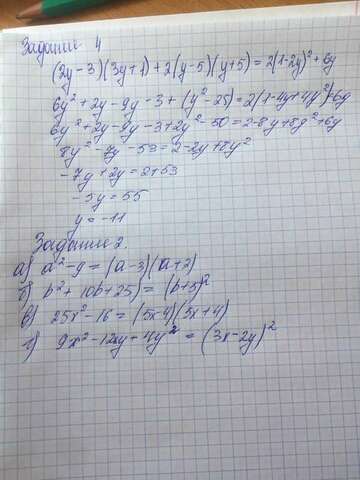 Задание 4
(2y-3)(3y+1)+2(y-5)(y+5)=2(1-2y)²+6y
6y²+2y-9y-3+(y²-25)=2(1-4y+4y²)+6y
6y²+2y-9y-3+2y²-50=2-8y+8y²+6y
8y²-7y-53=2-2y+8y²
-7y+2y=2+53
-5y=55
y=-11
Задание 2.
а) a²-9=(a-3)(a+2)
б) b²+10b+25)=(b+5)²
в) 25x²-16=(5x-4)(5x+4)
г) 9x²-12xy+4y²=(3x-2y)²